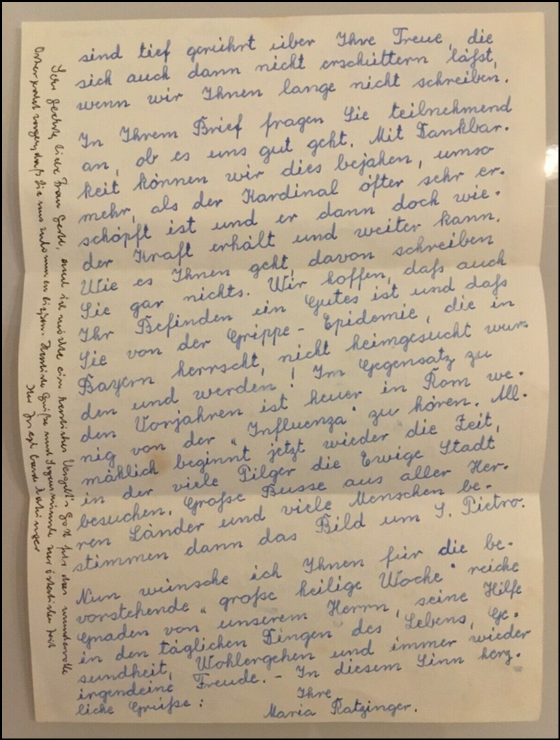 sind tief gerührt über Ihre Treue, die
sich auch dann nicht erschüttern läßt,
wenn wir Ihnen lange nicht schreiben.
In Ihrem Brief fragen Sie teilnehmend
an, ob es uns gut geht. Mit Dankbar-
keit können wir dies bejahen, umso
mehr, als der Kardinal öfter sehr er-
schöpft ist und er dann doch wie-
der Kraft erhält und weiter kann.
Wie es Ihnen geht, davon schreiben
Sie gar nichts. Wir hoffen, daß auch
Ihr Befinden ein Gutes ist und daß
Sie von der Grippe-Epidemie, die in
Bayern herrscht, nicht heimgesucht wur-
den und werden! Im Gegensatz zu
den Vorjahren ist heuer in Rom we-
nig von der "Influenza" zu hören. All-
mählich beginnt jetzt wieder die Zeit,
in der viele Pilger die Ewige Stadt
besuchen. Große Busse aus aller Her-
ren Länder und viele Menschen be-
stimmen dann das Bild um S. Pietro.
Nun wünsche ich Ihnen für die be-
vorstehende "große heilige Woche" reiche
Gnaden von unserem Herrn, seine Hilfe
in den täglichen Dingen des Lebens, Ge-
sundheit, Wohlergehen und immer wieder
irgendeine Freude. - In diesem Sinn herz-
liche Grüße: Ihre
Maria Ratzinger.
liebe Frau und ich möchte ein herzliches Vergelt's Gott für das wundervolle
daß Sie uns zukommen ließen. Herzliche Grüße und Segenswünsche zur österlichen Zeit
Ihr Joseph Card. Ratzinger